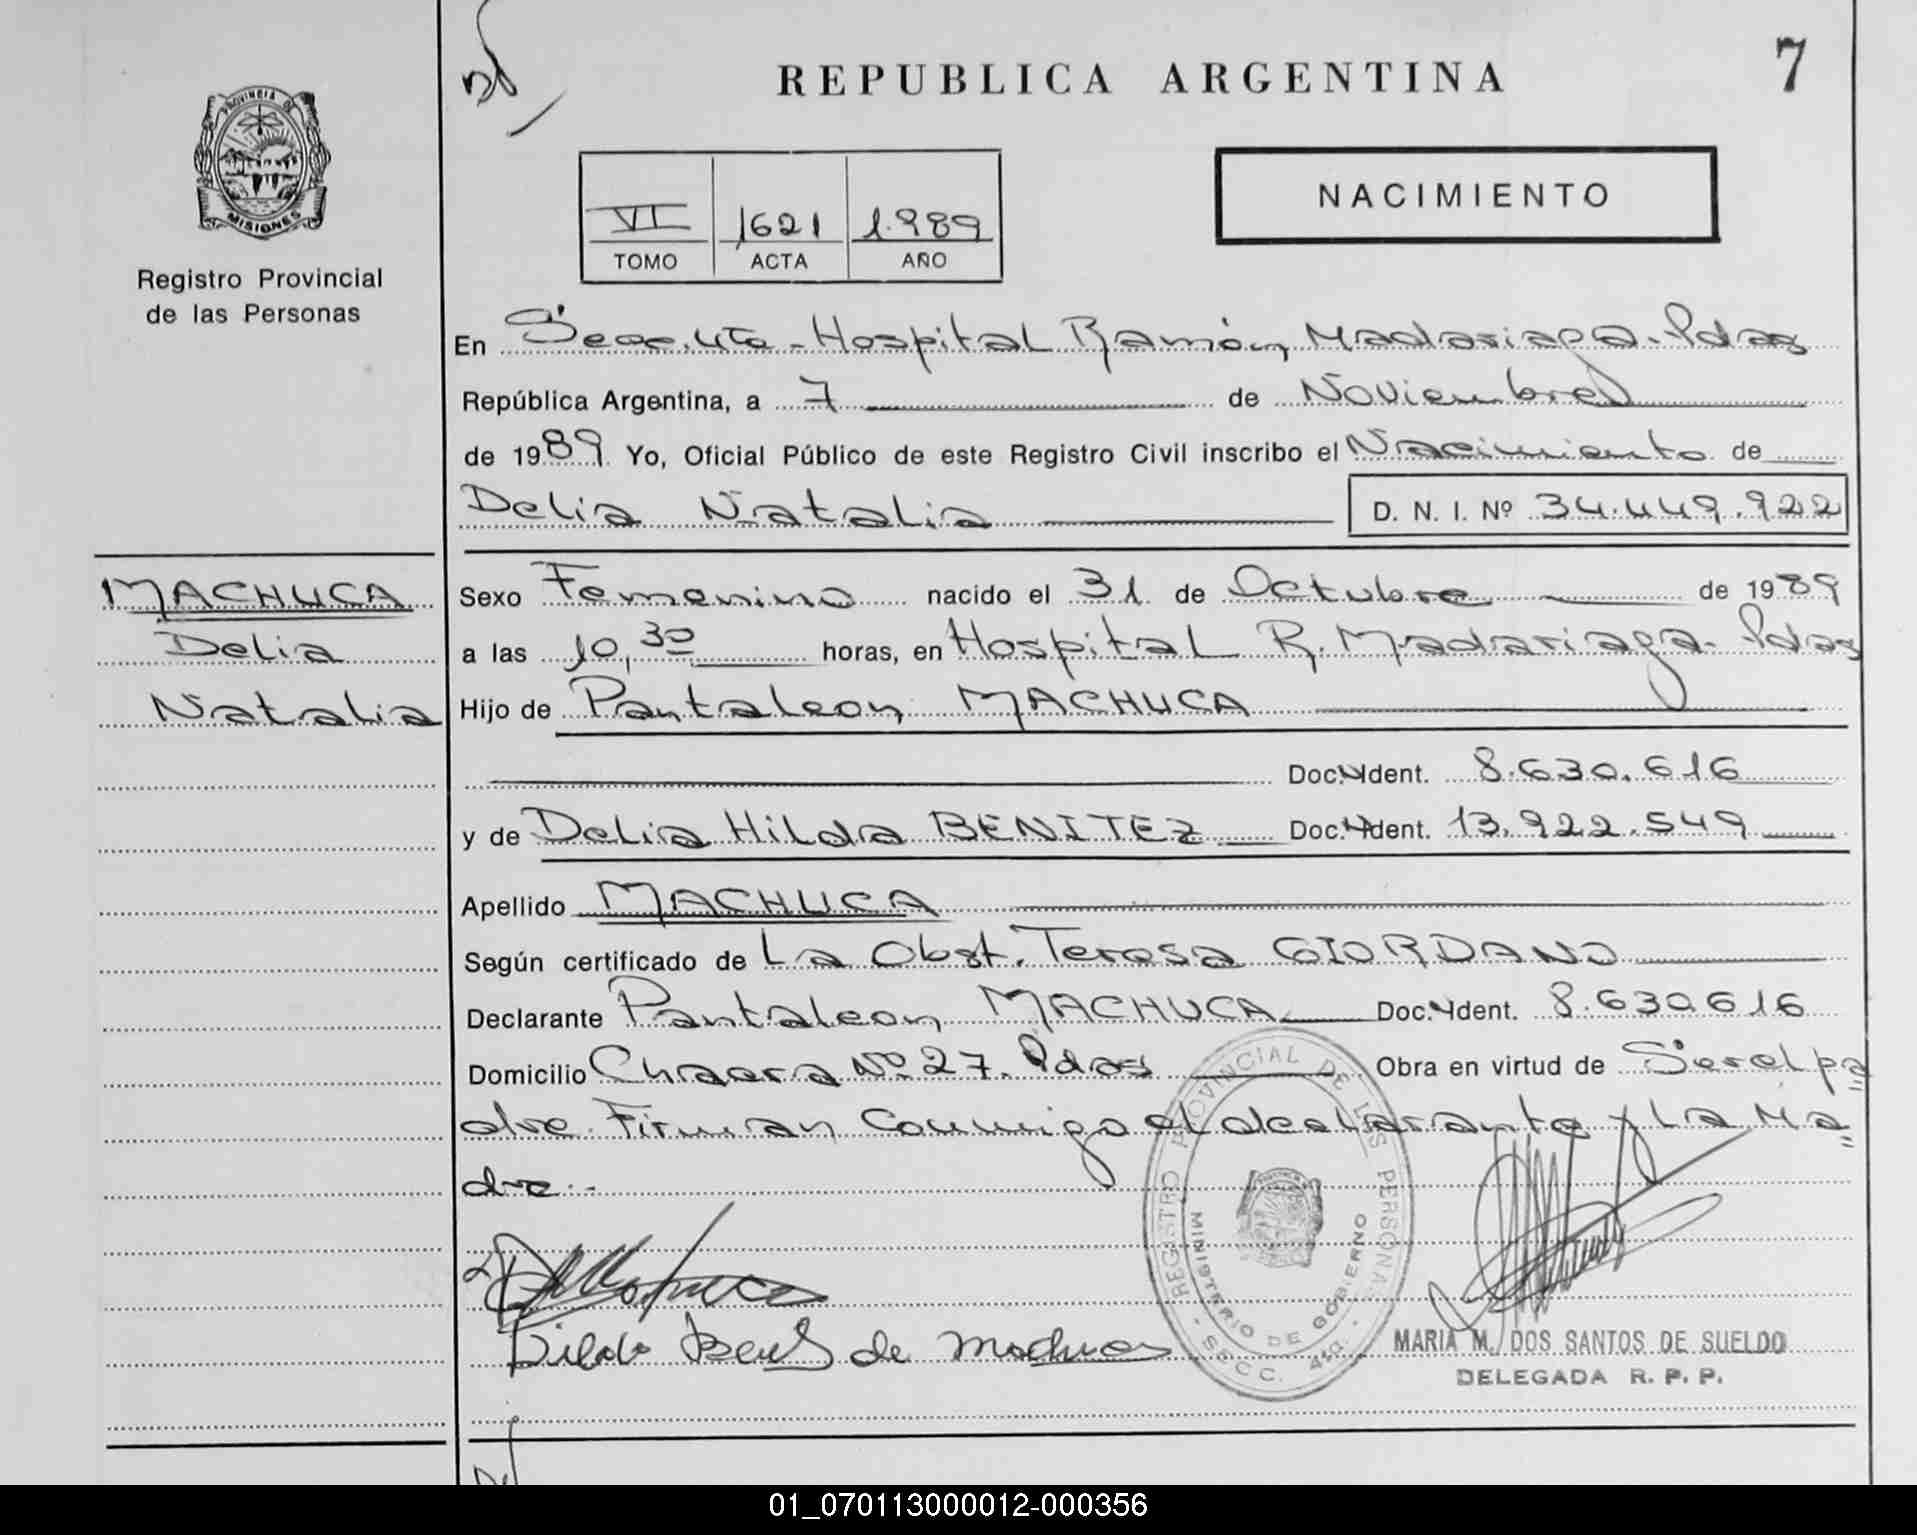 REPUBLICA ARGENTINA
7
PROVINCIA DE
MISIONES
Registro Provincial
de las Personas
VI 1621 1.989
TOMO ACTA AÑO
NACIMIENTO
En Secc. 4ta - Hospital Ramón Madariaga - Pdas
República Argentina, a 7 de Noviembre
de 1989 Yo, Oficial Público de este Registro Civil inscribo el Nacimiento de
Delia Natalia D. N. I. Nº 34.449.922
MACHUCA
Delia
Natalia
Sexo Femenino nacido el 31 de Octubre de 1989
a las 10,30 horas, en Hospital R. Madariaga - Pdas
Hijo de Pantaleon MACHUCA
Doc. Ident. 8.630.616
y de Delia Hilda BENITEZ Doc. Ident. 13.922.549
Apellido MACHUCA
Según certificado de La Obst. Teresa GIORDANO
Declarante Pantaleon MACHUCA Doc. Ident. 8.630.616
Domicilio Chacra Nº 27. Pdas Obra en virtud de Ser el pa
dre. Firman Conmigo el declarante y La Ma
dre.-
REGISTRO PROVINCIAL DE LAS PERSONAS
MINISTERIO DE GOBIERNO
- SECC. 4ta. -
de Machuca
MARIA M. DOS SANTOS DE SUELDO
DELEGADA R. P. P.
01_070113000012-000356